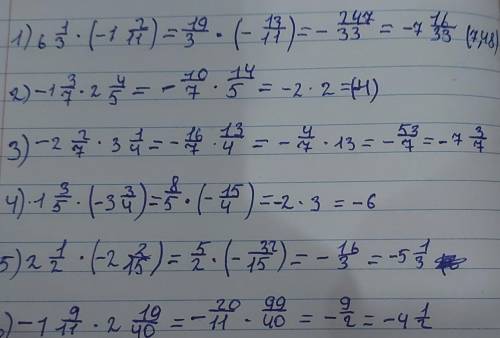 1) 6 1/3 · (-1 2/11) = 19/3 · (-13/11) = - 247/33 = -7 16/33 (7,48)
2) -1 3/7 · 2 4/5 = - 10/7 · 14/5 = -2 · 2 = (-4)
3) -2 2/7 · 3 1/4 = - 16/7 · 13/4 = - 4/7 · 13 = - 53/7 = -7 3/7
4) · 1 3/5 · (-3 3/4) = 8/5 · (- 15/4) = -2 · 3 = -6
5) 2 1/2 · (-2 2/15) = 5/2 · (- 32/15) = - 16/3 = -5 1/3
) -1 9/11 · 2 19/40 = - 20/11 · 99/40 = - 9/2 = -4 1/2